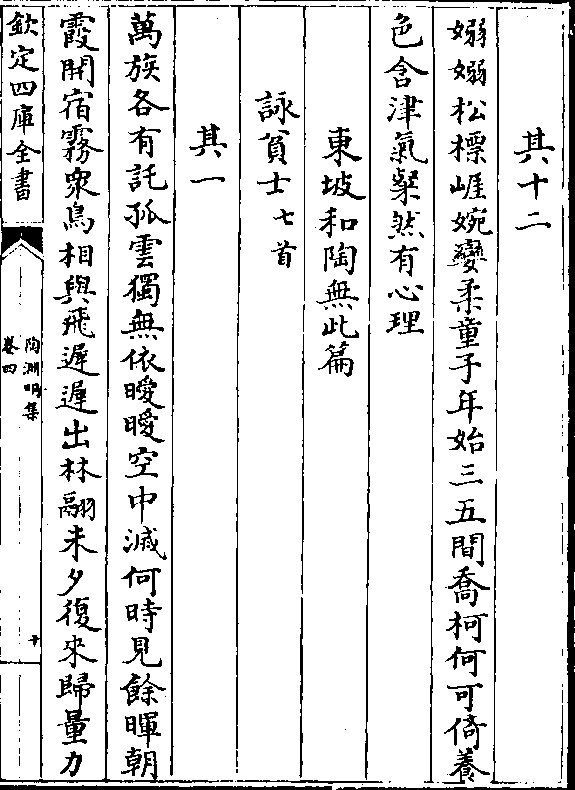 其十二
嫋嫋松標崕婉孌柔童子年始三五間喬柯何可倚養
色含津氣粲然有心理
東坡和陶無此篇
詠貧士七首
其一
萬族各有託孤雲獨無依曖曖空中滅何時見餘暉朝
霞開宿霧衆鳥相與飛遲遲出林翮未夕復來歸量力
欽定四庫全書
陶淵明集
卷四
十